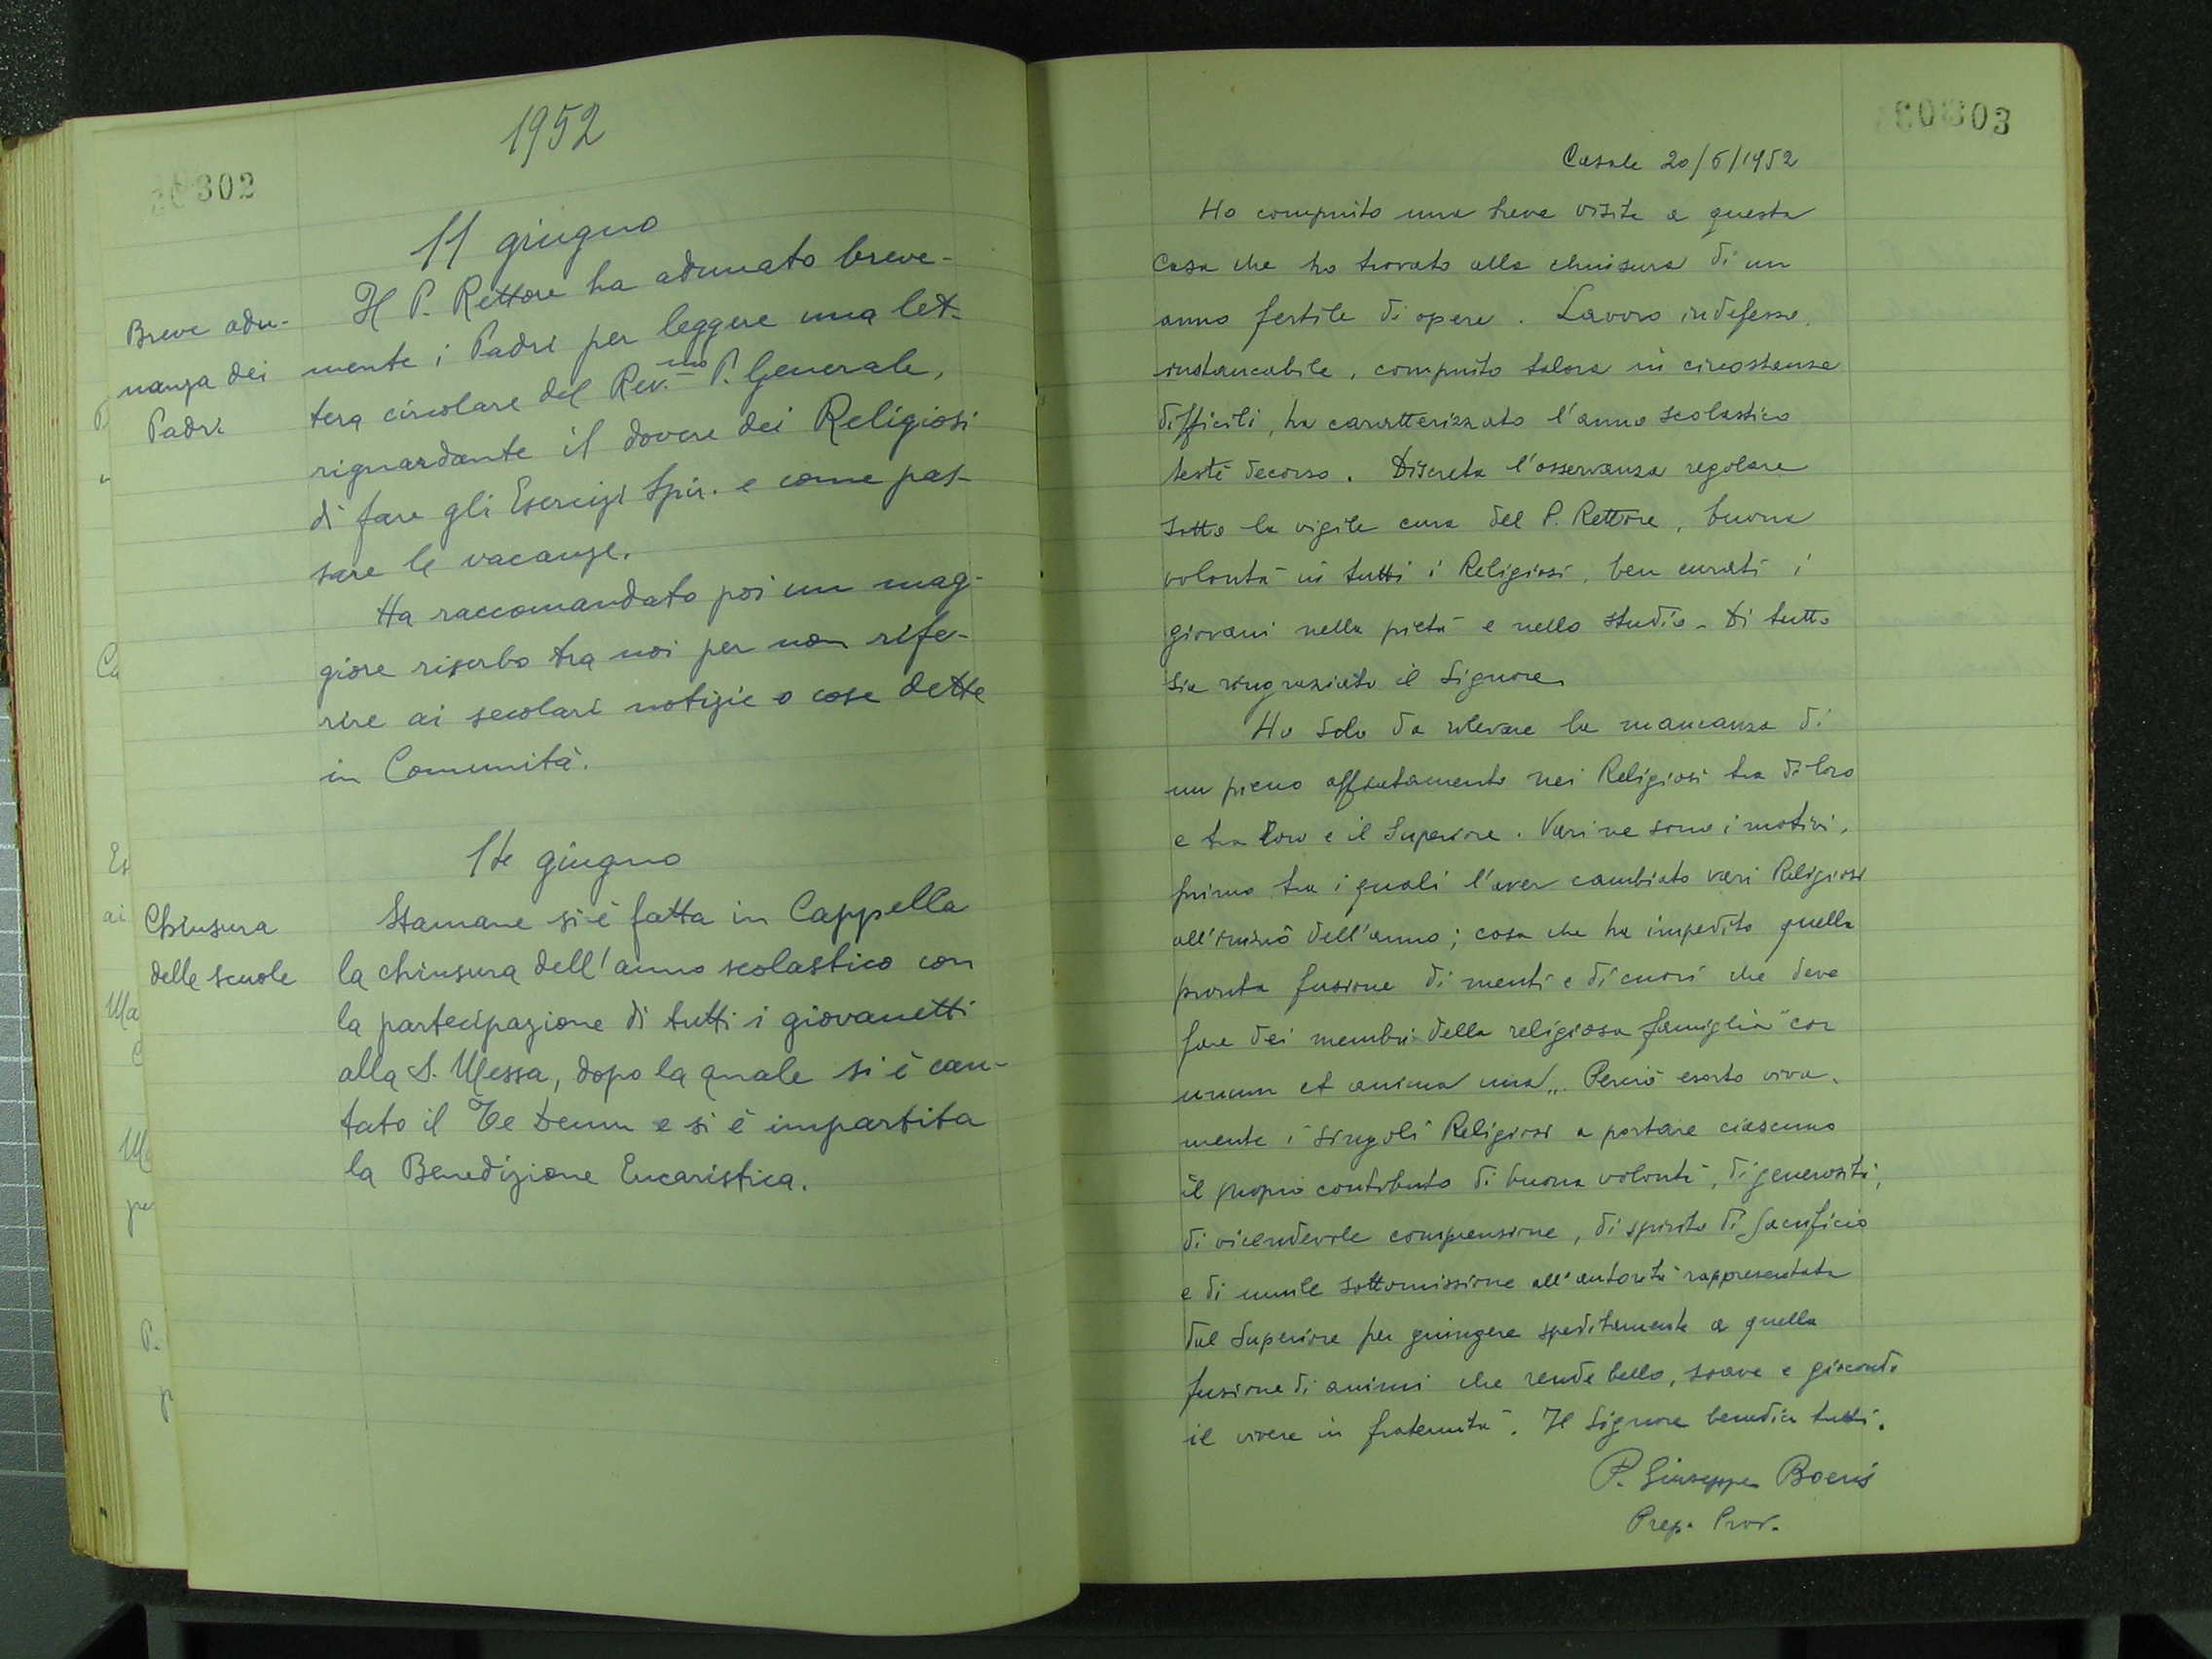 302
1952
11 giugno
Breve adu-
nanza dei
Padri
Il P. Rettore ha adunato breve-
mente i Padri per leggere una let-
tera circolare del Rev.mo P. Generale,
riguardante il dovere dei Religiosi
di fare gli Esercizi Spir. e come pas-
sare le vacanze.
Ha raccomandato poi un mag-
giore riserbo tra noi per non rife-
rire ai secolari notizie o cose dette
in Comunità.
14 giugno
Chiusura
delle scuole
Stamane si è fatta in Cappella
la chiusura dell'anno scolastico con
la partecipazione di tutti i giovanetti
alla S. Messa, dopo la quale si è can-
tato il Te Deum e si è impartita
la Benedizione Eucaristica.
303
Casale 20/6/1952
Ho compiuto una breve visita a questa
Casa che ho trovato alla chiusura di un
anno fertile di opere. Lavoro indefesso,
instancabile, compiuto talora in circostanze
difficili, ha caratterizzato l'anno scolastico
testè decorso. Discreta l'osservanza regolare
sotto la vigile cura del P. Rettore, buona
volontà in tutti i Religiosi, ben curati i
giovani nella pietà e nello studio. Di tutto
sia ringraziato il Signore.
Ho solo da rilevare la mancanza di
un pieno affiatamento nei Religiosi tra di loro
e tra loro e il Superiore. Vari ne sono i motivi,
primo tra i quali l'aver cambiato vari Religiosi
all'inizio dell'anno; cosa che ha impedito quella
pronta fusione di menti e di cuori che deve
fare dei membri della religiosa famiglia "cor
unum et anima una„. Perciò esorto viva-
mente i singoli Religiosi a portare ciascuno
il proprio contributo di buona volontà, di generosità,
di vicendevole comprensione, di spirito di sacrificio
e di umile sottomissione all'autorità rappresentata
dal Superiore per giungere speditamente a quella
fusione di animi che rende bello, soave e giocondo
il vivere in fraternità. Il Signore benedica tutti.
P. Giuseppe Boeris
Prep. Prov.